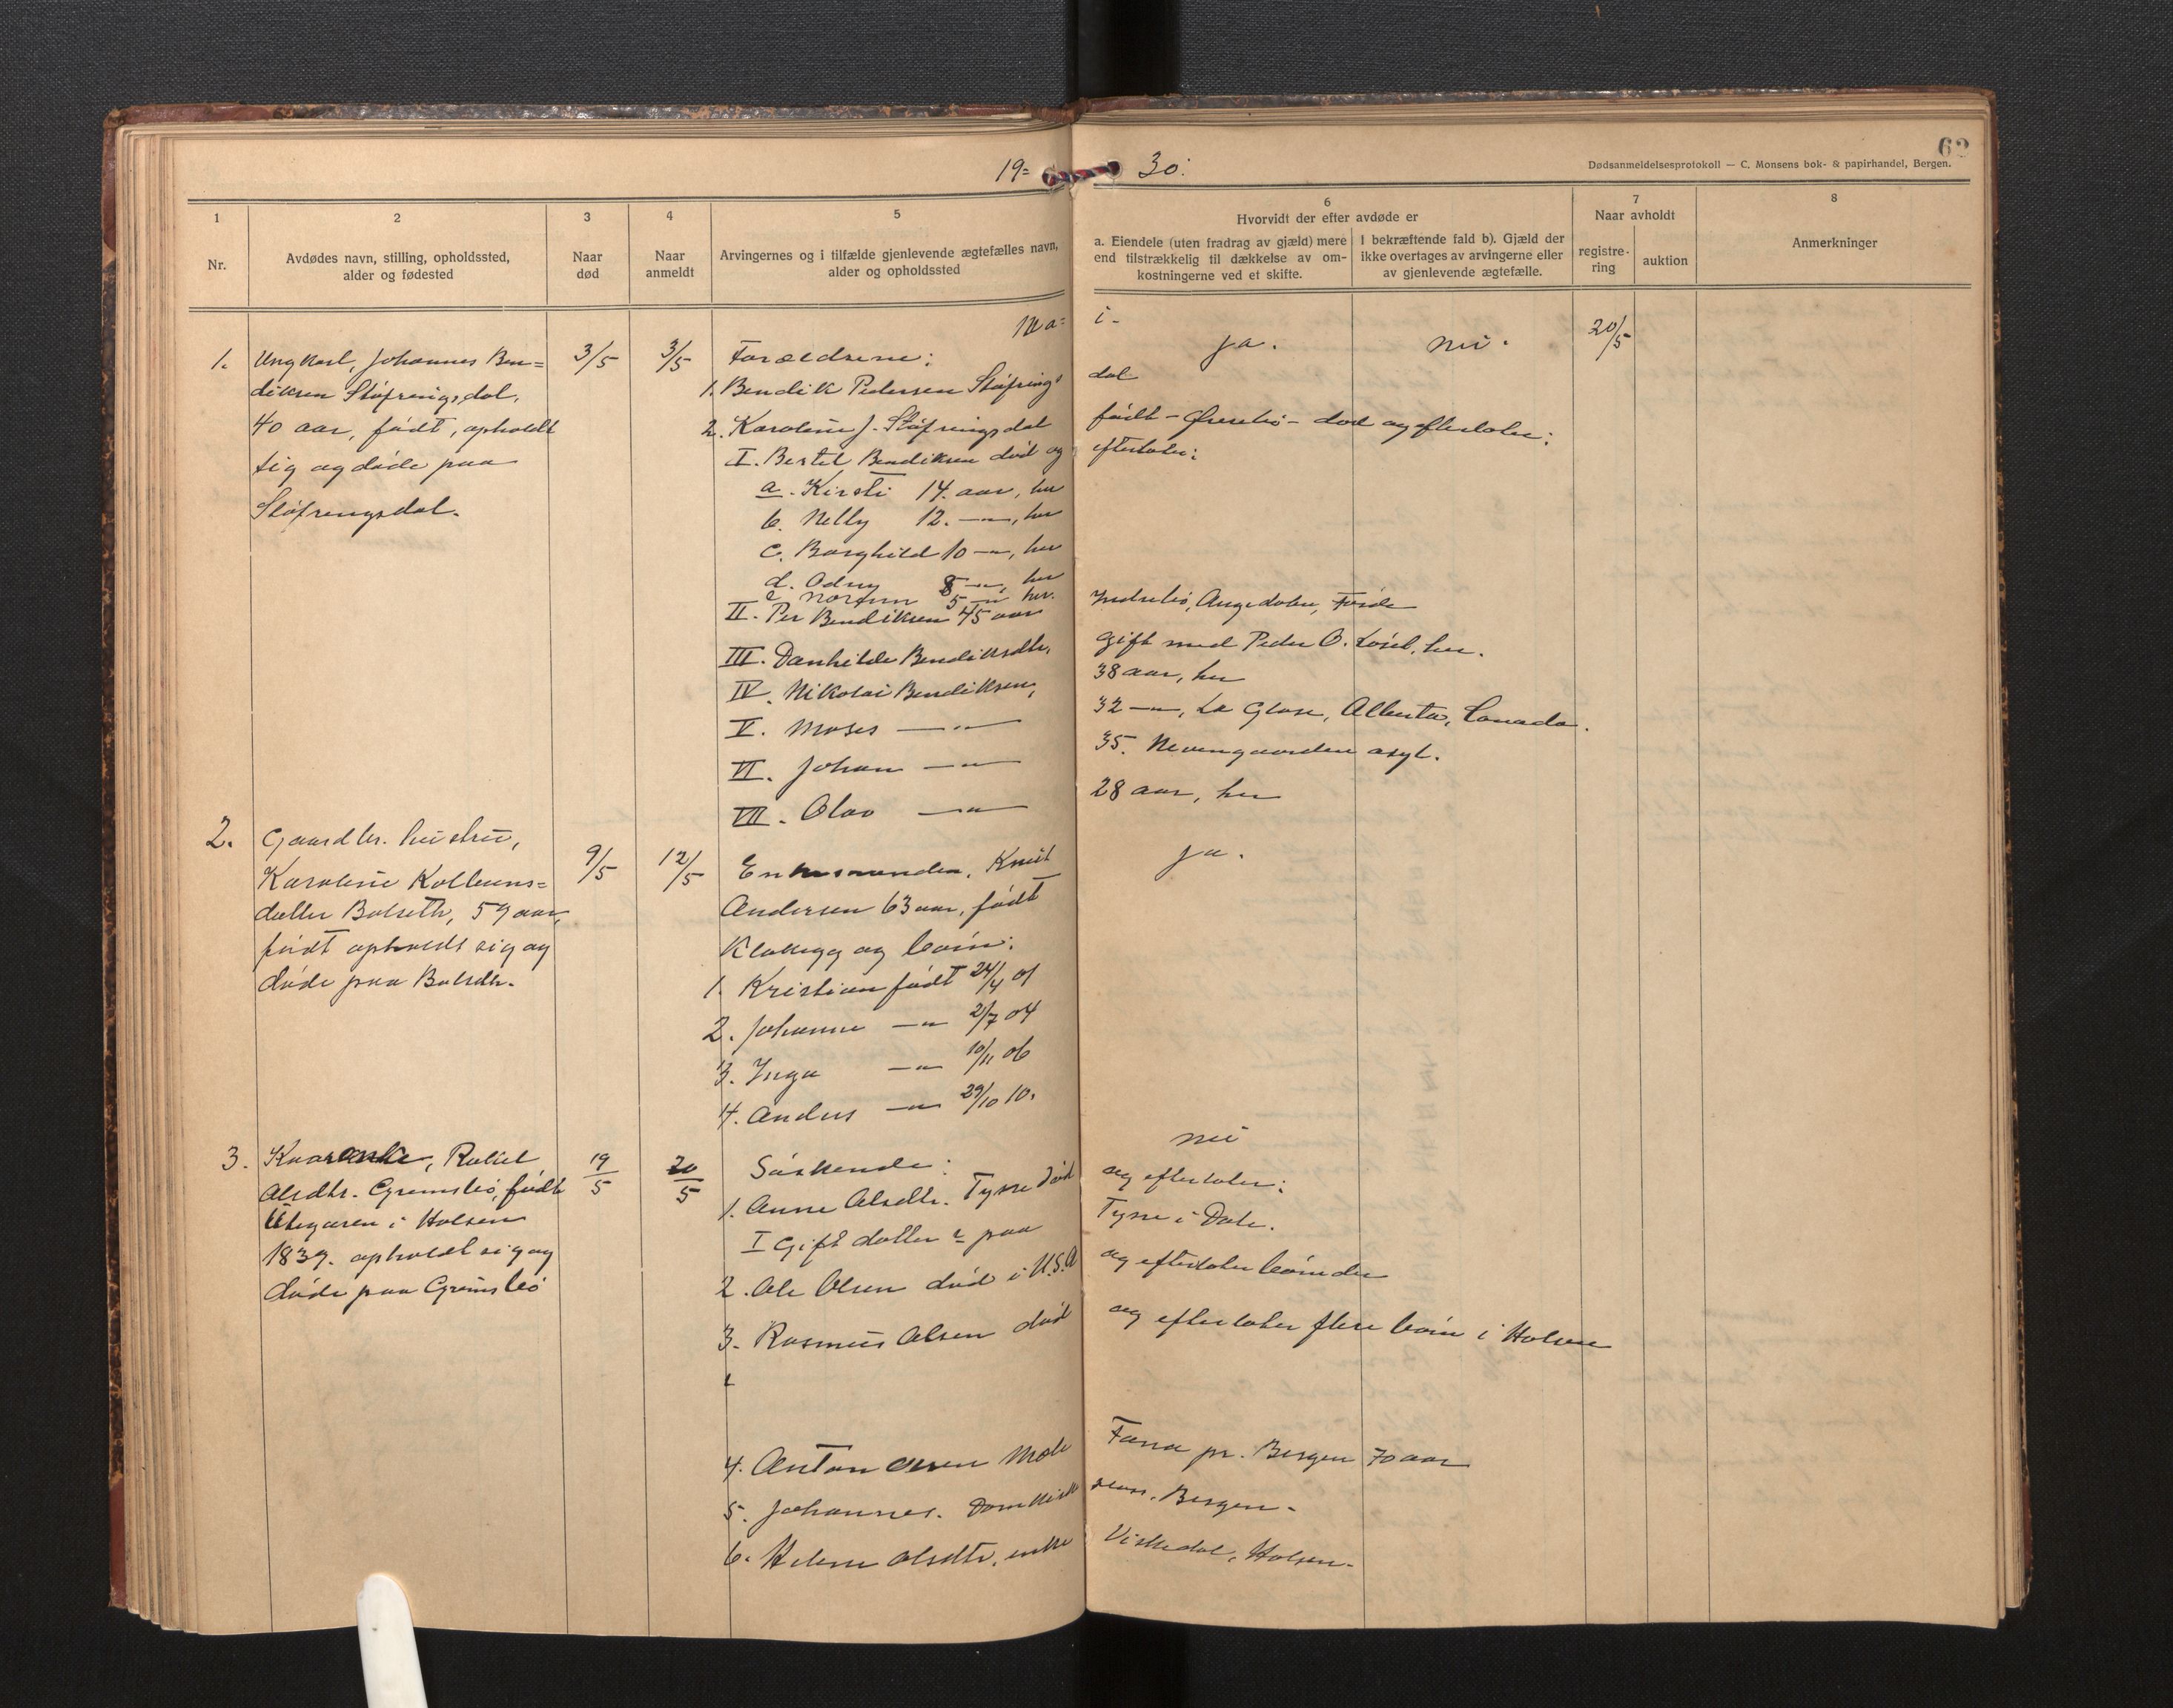 19= 30.
62
Dødsanmeldelsesprotokoll — C. Monsens bok- & papirhandel, Bergen.
1
Nr.
2
Avdødes navn, stilling, opholdssted,
alder og fødested
3
Naar
død
4
Naar
anmeldt
5
Arvingernes og i tilfælde gjenlevende ægtefælles navn,
alder og opholdssted
6
Hvorvidt der efter avdøde er
a. Eiendele (uten fradrag av gjæld) mere
end tilstrækkelig til dækkelse av om-
kostningerne ved et skifte.
I bekræftende fald b). Gjæld der
ikke overtages av arvingerne eller
av gjenlevende ægtefælle.
7
Naar avholdt
registre-
ring
auktion
8
Anmerkninger
Ma= i-
1.
Ungkarl, Johannes Ben=
diksen Støfringsdal,
40 aar, født, opholdt
sig og døde paa
Støfringsdal.
3/5
3/5
Forældrene:
1. Bendik Pedersen Støfrings dal
2. Karoline J. Støfringsdal født - - død og efterlater:
I. Bertel Bendiksen død og efterlater:
a. Kirsti 14. aar, her
b. Nelly 12. —"—, her
c. Borghild 10 —"—, her
d. Odny 8 —"— her
e. 5 —"— her.
II. Per Bendiksen 45 aar Indrebø, Angedalen, Førde
III. Danhilde Bendiksdtr. gift med Peder O. her.
IV. Nikolai Bendiksen, 38 aar, her
V. Moses —"— 32 —"—, La Glase, Alberta, Canada.
VI. Johan —"— 35. Nevengaarden asyl.
VII. Olav —"— 28 aar, her
ja.
nei.
20/5
2.
Gaardbr. hustru,
Karoline Kolbeins=
datter Bolseth, 59 aar,
født opholdt sig og
døde paa Bolseth.
9/5
12/5
Enkemanden, Knut
Andersen 63 aar, født
Klakegg og børn:
1. Kristian født 24/4 01
2. Johanne —"— 2/7 04
3. Inga —"— 10/11 06
4. Anders —"— 29/10 10.
ja.
3.
Kaarenke, Rakel
Olsdtr. Grimsbø, født
i Holsen
1839. opholdt sig og
døde paa Grimsbø
19/5
20/5
Søskende:
1. Anne Olsdtr. Tysse død og efterlater:
I Gift datter paa Tysse i Dale.
2. Ole Olsen død i U.S.A og efterlater børn der
3. Rasmus Olsen død og efterlater flere børn i Holsen
4. Anton Olsen Mo Fana pr. Bergen 70 aar
5. Johannes. Bergen.
6. Helene Olsdtr. enke Viskedal, Holsen.
nei